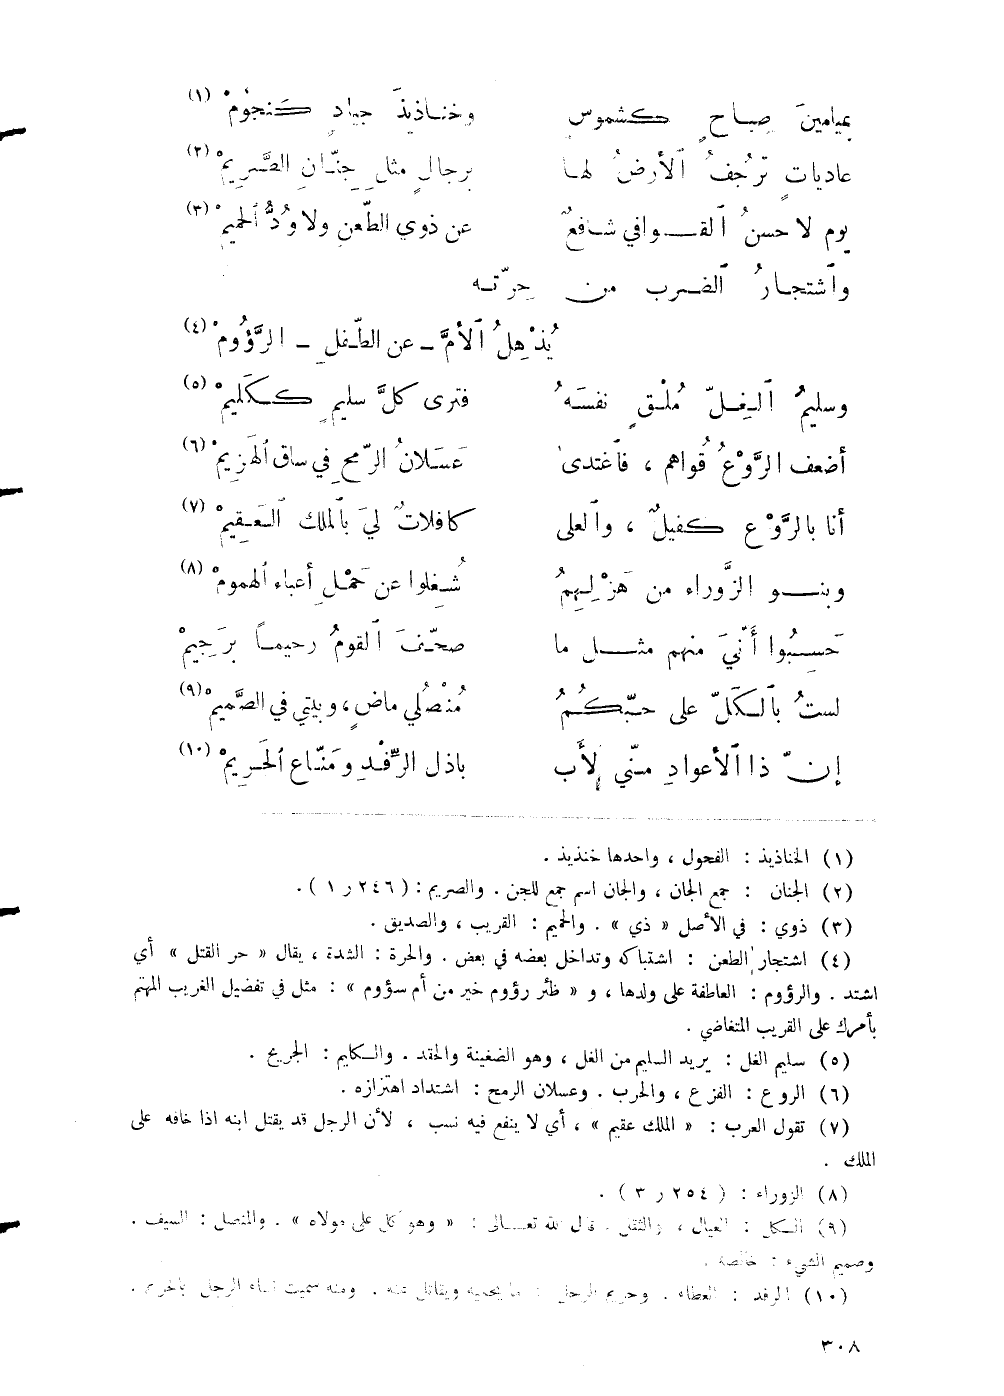 بميامينَ صِبـاحٍ كـشموسٍ وخنـاذيذَ جيادٍ كَنجوُمْ (١)
عادياتٍ تَرجُفُ ٱلأرضُ لهـا برجالٍ مثلِ جِنّـانِ الصَّـريمْ (٢)
يوم لا حسنُ ٱلقـوافي شـافعٌ عن ذوي الطّعنِ ولا وُدُّ ٱلحميمْ (٣)
وٱشتجـارُ ٱلضـرب من حِرّتـه
يُذْهِلُ ٱلأمَّ ـ عن الطّـفلِ ـ الرَّؤُومْ (٤)
وسليمُ ٱلـغِـلّ مُلْـقٍ نفسَـهُ فترى كلَّ سليمٍ كـكَليمْ (٥)
أضعف الرَّوْعُ قُواهم ، فٱغتدىٰ عَسَـلانُ الرّمحِ في ساق ٱلهَزيمْ (٦)
أنا بالرَّوْع كـفيلٌ ، وٱلعلى كافلاتٌ ليَ بٱلملك ٱلـعَـقيمْ (٧)
وبنـو الزَّوراء من هَزْلِـهِمُ شُـغِلوا عن حَمْـلِ أعباء ٱلهمومْ (٨)
حَسِـبُوا أَنّيَ منهم مثـل ما صحّـفَ ٱلقومُ رحيمـاً برَجيمْ
لستُ بٱلـكَلّ على حبّـكُـمُ مُنْصُلي ماضٍ، وبيتي في الصَّميمْ (٩)
إنّ ذا ٱلأعوادِ مـنّي لِأَب باذل الرِّفْـدِ ومَنّـاع ٱلحَريمْ (١٠)
(١) الخناذيذ : الفحول ، واحدها خنذيذ .
(٢) الجنان : جمع الجان ، والجان اسم جمع للجن . والصريم : ( ٢٤٦ ر ١ ) .
(٣) ذوي : في الأصل « ذي » . والحميم : القريب ، والصديق .
(٤) اشتجار الطعن : اشتباكه وتداخل بعضه في بعض . والحرة : الشدة ، يقال « حر القتل » أي
اشتد . والرؤوم : العاطفة على ولدها ، و « ظئر رؤوم خير من أم سؤوم » : مثل في تفضيل الغريب المهتم
بأمرك على القريب المتغاضي .
(٥) سليم الغل : يريد السليم من الغل ، وهو الضغينة والحقد . والـكليم : الجريح .
(٦) الروع : الفزع ، والحرب . وعسلان الرمح : اشتداد اهتزازه .
(٧) تقول العرب : « الملك عقيم » ، أي لا ينفع فيه نسب ، لأن الرجل قد يقتل ابنه اذا خافه على
الملك .
(٨) الزوراء : ( ٢٥٤ ر ٣ ) .
(٩) الـكل : العيال ، والثقل . قال الله تعـالى : « وهو كل على مولاه » . والمنصل : السيف .
وصميم الشيء : خالصه .
(١٠) الرفد : العطاء . وحريم الرجل : ما يحميه ويقاتل عنه . ومنه سميت نساء الرجل بالحريم .
٣٠٨